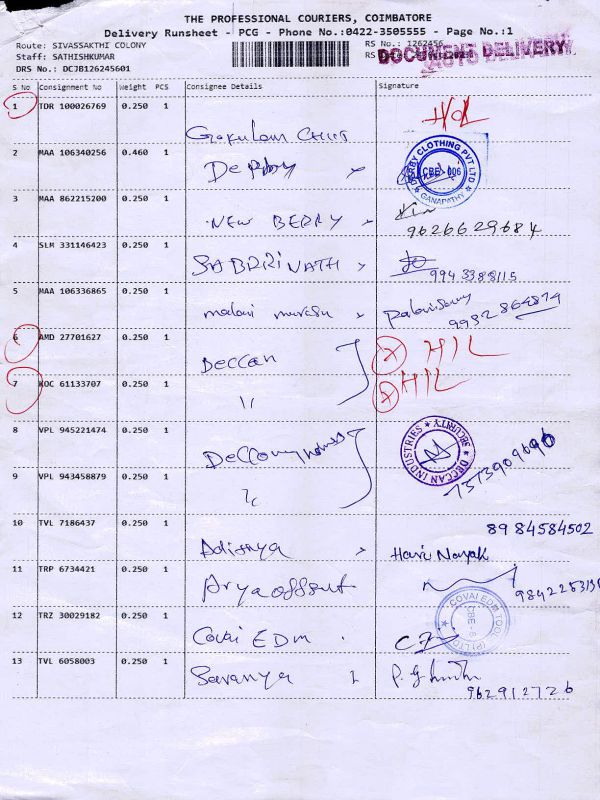 THE PROFESSIONAL COURIERS, COIMBATORE
Delivery Runsheet - PCG - Phone No.:0422-3505555 - Page No.:1
Route: SIVASSAKTHI COLONY
RS No.: 1262456
Staff: SATHISHKUMAR
DOCUMENT DELIVERY
DRS No.: DCJB126245601
S No Consignment No Weight PCS Consignee Details Signature
1 TDR 100026769 0.250 1
2 MAA 106340256 0.460 1
DERBY CLOTHING PVT LTD CBE-006 GANAPATHY
3 MAA 862215200 0.250 1 NEW BERRY
9626629684
4 SLM 331146423 0.250 1 SABBRINATH
9943388115
5 MAA 106336865 0.250 1
6 AMD 27701627 0.250 1 Deccan HIL
7 KOC 61133707 0.250 1 " HIL
8 VPL 945221474 0.250 1
DECCAN INDUSTRIES SECURITY
9 VPL 943458879 0.250 1 "
8984584502
10 TVL 7186437 0.250 1 Hari Nayak
11 TRP 6734421 0.250 1 Arya offset
12 TRZ 30029182 0.250 1 Covai EDM
COVAI EDM TOOL (P) LTD CBE-6
13 TVL 6058003 0.250 1 Saranya
962912726